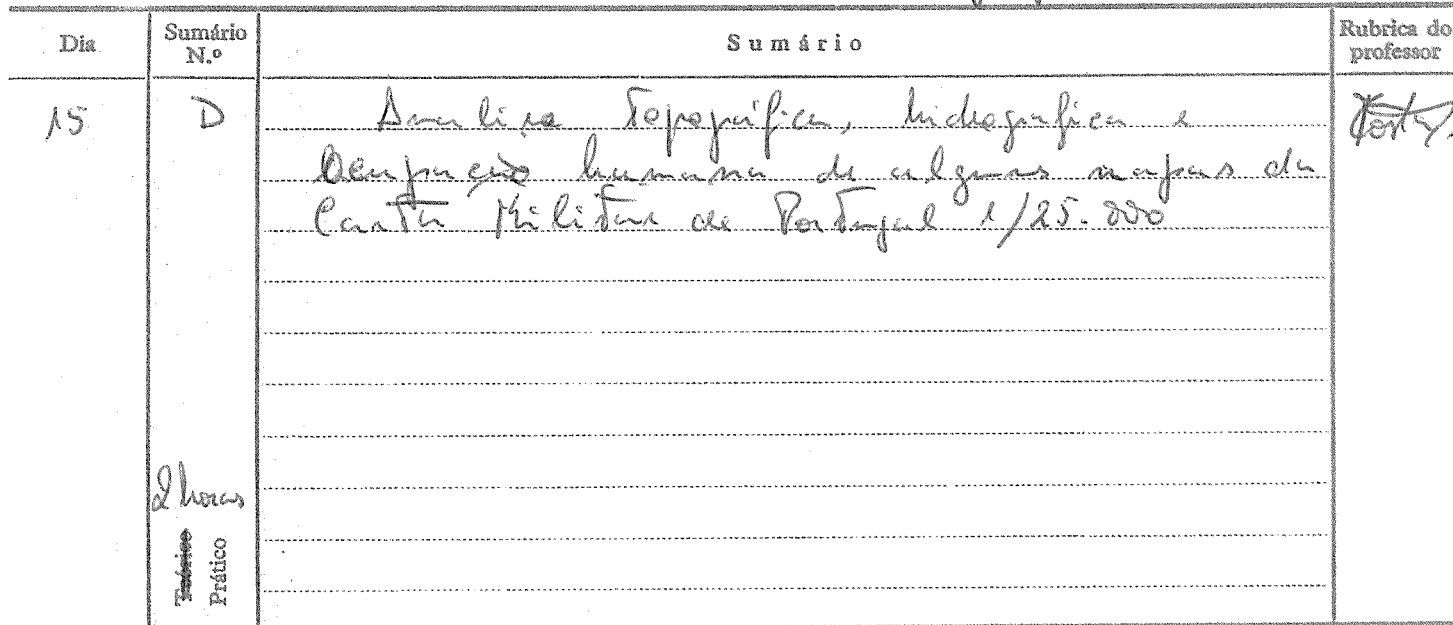 Dia
Sumário
N.º
Sumário
Rubrica do
professor
15
D
Analise Topográfica, hidrografica e
Ocupação humana de algumas mapas da
Carta Militar de Portugal 1/25.000
2 horas
Teórico
Prático